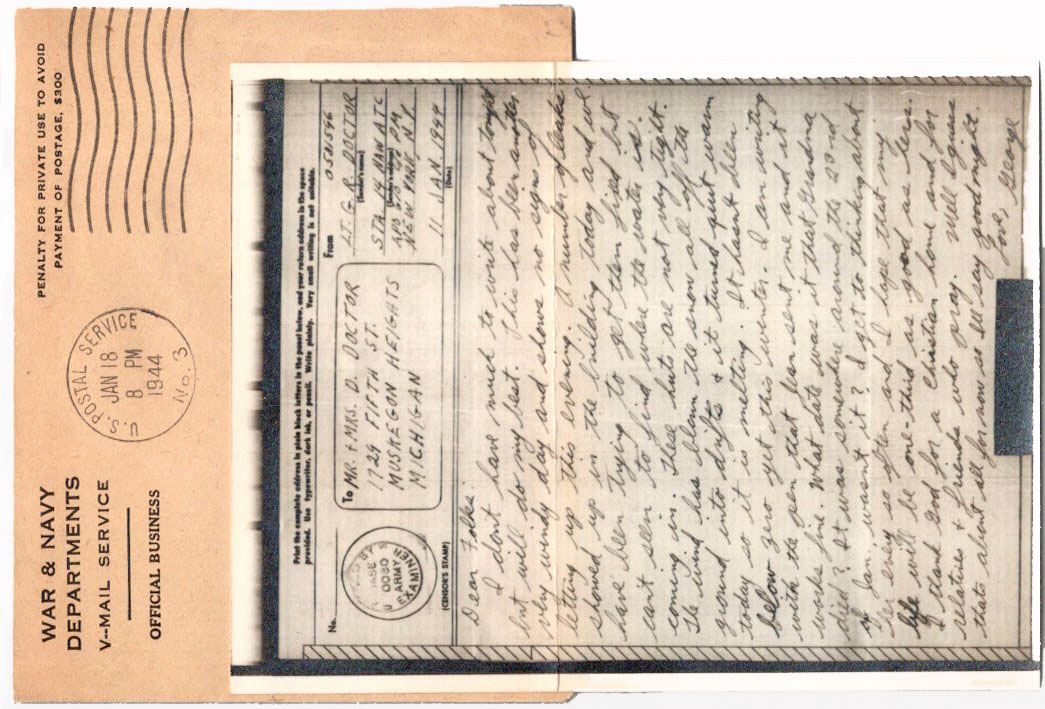 PENALTY FOR PRIVATE USE TO AVOID
PAYMENT OF POSTAGE, $300
U. S. POSTAL SERVICE
JAN 18
8 PM
1944
No. 3
WAR & NAVY
DEPARTMENTS
V--MAIL SERVICE
OFFICIAL BUSINESS
Print the complete address in plain block letters in the panel below, and your return address in the space
provided. Use typewriter, dark ink, or pencil. Write plainly. Very small writing is not suitable.
No.
BASE
0080
ARMY
EXAMINER
(CENSOR'S STAMP)
To MR. + MRS. D. DOCTOR
1729 FIFTH ST.
MUSKEGON HEIGHTS
MICHIGAN
From
LT. G. R. DOCTOR
(Sender's name)
STA. 14 NAW ATC
(Sender's address)
NEW YORK N.Y.
11 JAN 1944
(Date)
Dear Folks:
I don't have much to write about tonight
but will do my best. This has been another
very windy day and shows no signs of
letting up this evening. A number of leaks
showed up in the building today and we
have been trying to get them fixed but
can't seem to find where the water is
coming in. These huts are not very tight.
The wind has blown the snow all off the
ground into drifts & it turned quit warm
today so it is melting. It hasn't been
below zero yet this winter. I am writing
with the pen that Jean sent me and it
works fine. What date was it that Grandma
died? It was somewhere around the 23rd
of Jan. wasn't it? I get to thinking about
her every so often and I hope that my
life will be one-third as good as hers.
I thank God for a Christian home and for
relatives & friends who pray. Well I guess
thats about all for now so I'll say goodnight.
Love
George